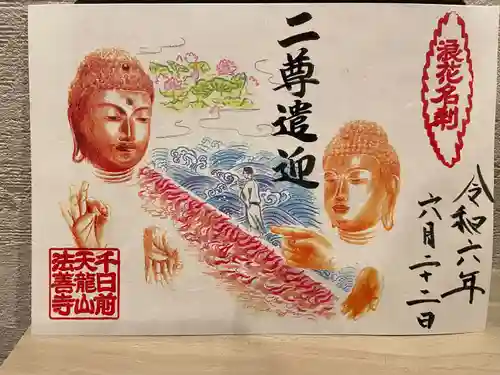 浪花名刹
二尊遣迎
令和六年
六月二十二日
千日前
天龍山
法善寺